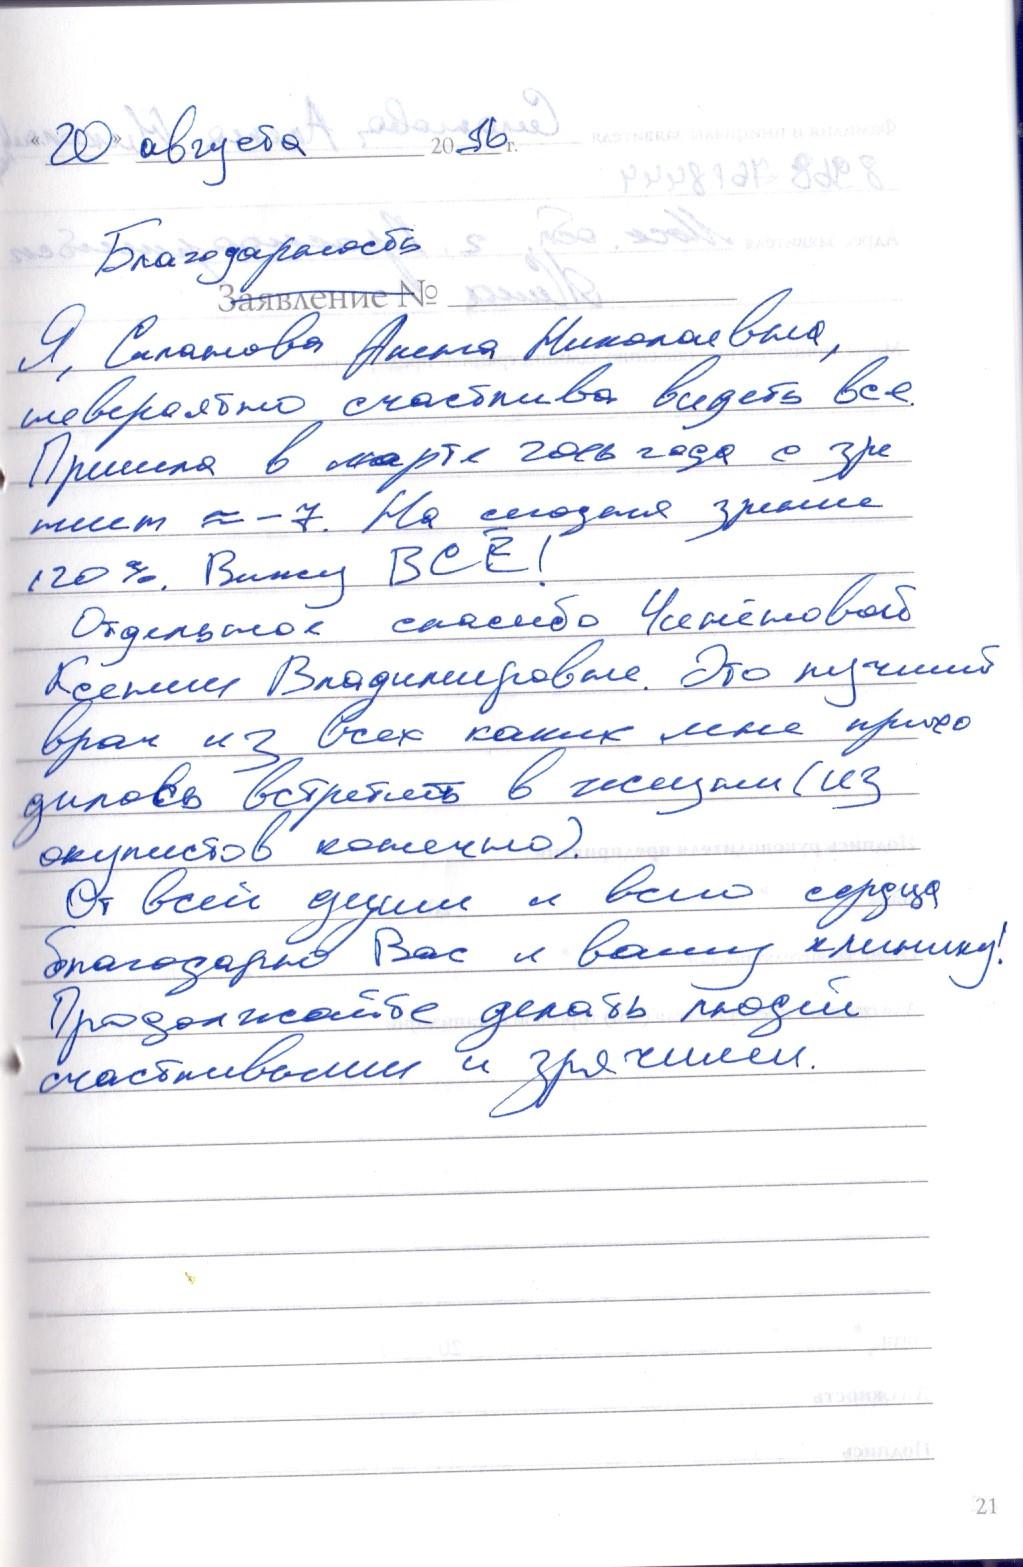 «20» августа 2016 г.
Благодарность
Заявление №
Я, Силатова Алена Николаевна,
невероятно счастлива видеть все.
Пришла в марте года с зре
нием ≈ -7. На сегодня зрение
120%. Вижу ВСЁ!
Отдельное спасибо
Ксении Владимировне. Это лучший
врач из всех каких мне прихо
дилось встретить в жизни (из
окулистов конечно).
От всей души и всего сердца
благодарю Вас и вашу клинику!
Продолжайте делать людей
счастливыми и зрячими.
21